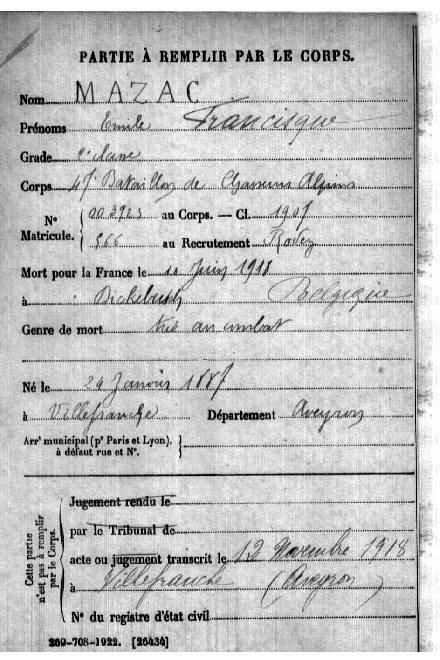 PARTIE À REMPLIR PAR LE CORPS.
Nom MAZAC
Prénoms Emile Francisque
Grade 2e classe
Corps 47e Bataillon de Chasseurs Alpins
Nº Matricule. { 003723 au Corps. — Cl. 1907
566 au Recrutement Rodez
Mort pour la France le 10 Juin 1918
à Dickebush Belgique
Genre de mort tué au combat
Né le 24 Janvier 1887
à Villefranche Département Aveyron
Arrt municipal (pr Paris et Lyon), à défaut rue et Nº. }
Cette partie n'est pas à remplir par le Corps.
Jugement rendu le
par le Tribunal de
acte ou jugement transcrit le 12 Novembre 1918
à Villefranche (Aveyron)
Nº du registre d'état civil
269-708-1922. [26434]